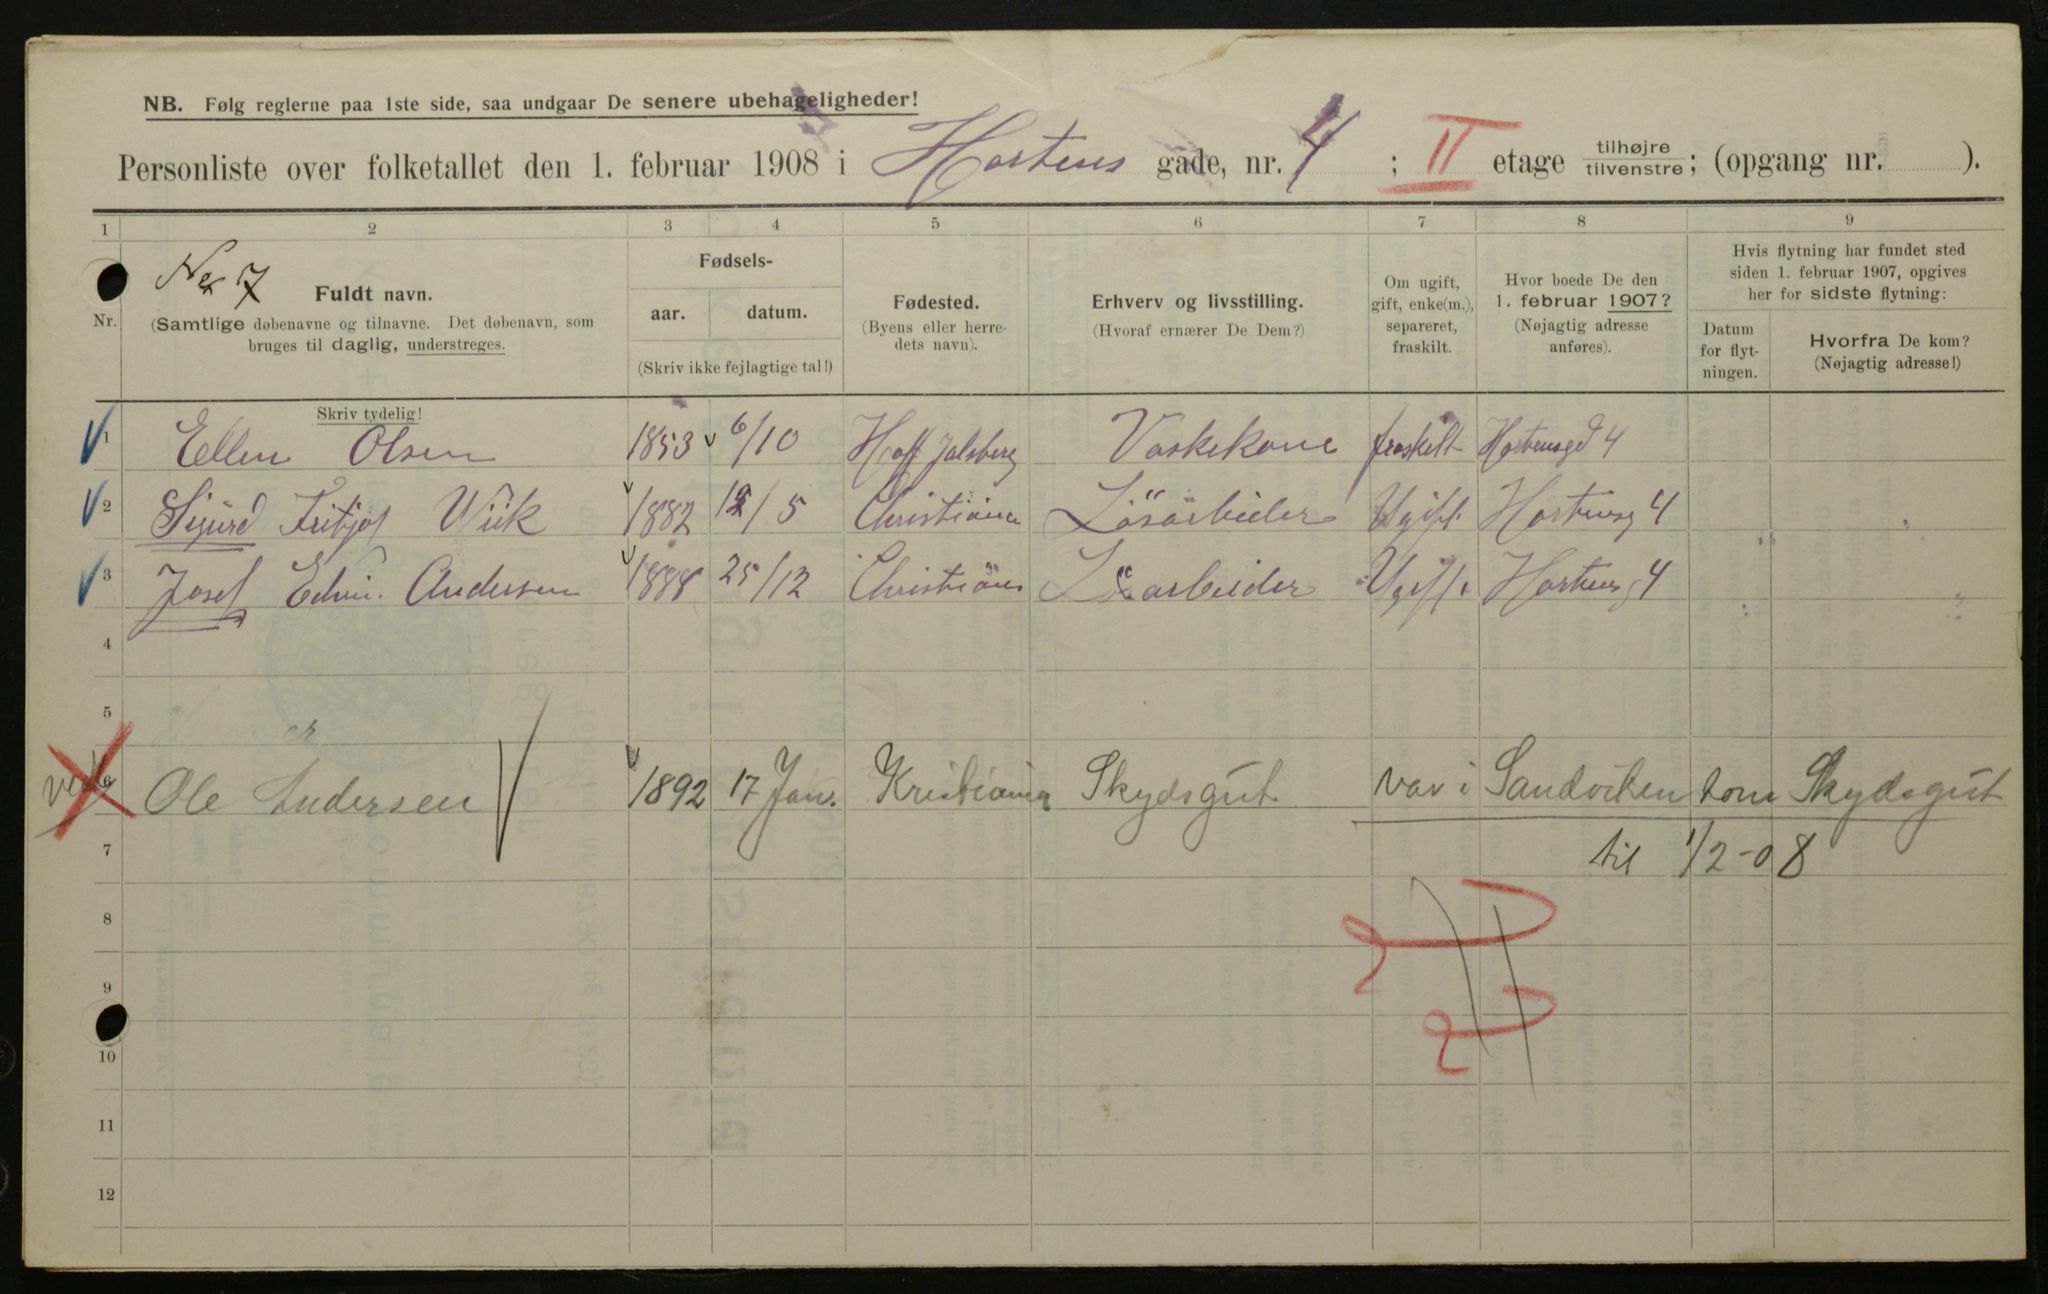 NB. Følg reglerne paa 1ste side, saa undgaar De senere ubehageligheder!
Personliste over folketallet den 1. februar 1908 i Hortens gade, nr. 4 ; II etage tilhøjre tilvenstre; (opgang nr. ).
1 2 3 4 5 6 7 8 9
Nr.
7
Fuldt navn.
(Samtlige døbenavne og tilnavne. Det døbenavn, som
bruges til daglig, understreges.
Skriv tydelig!
Fødsels-
aar. datum.
(Skriv ikke fejlagtige tal!)
Fødested.
(Byens eller herre-
dets navn).
Erhverv og livsstilling.
(Hvoraf ernærer De Dem?)
Om ugift,
gift, enke(m.),
separeret,
fraskilt.
Hvor boede De den
1. februar 1907?
(Nøjagtig adresse
anføres).
Hvis flytning har fundet sted
siden 1. februar 1907, opgives
her for sidste flytning:
Datum
for flyt-
ningen.
Hvorfra De kom?
(Nøjagtig adresse!)
1 Ellen Olsen 1853 6/10 Hoff Jalsberg Vaskekone fraskelt Hortensgd 4
2 Sigurd Fritjof Wiik 1882 12/5 Christiania Løsarbeider Ugift Hortensg 4
3 Josef Edvin Andersen 1888 25/12 Christiania Løsarbeider Ugift Hortensg 4
4
5
6 Ole Andersen 1892 17 Jan. Kristiania Skydsgut var i Sandviken som Skydsgut
7 til 1/2-08
8
9
10
11
12